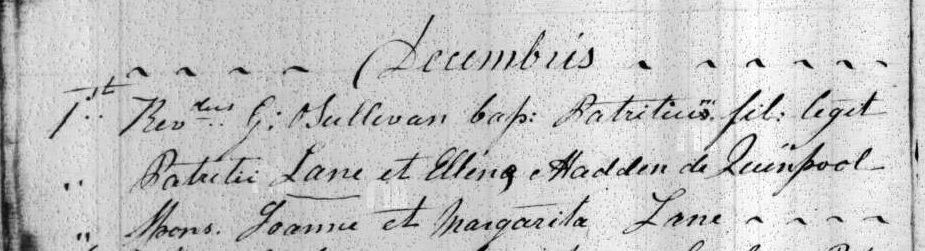 ~ ~ ~ ~ Decembris ~ ~ ~ ~ ~
1st Revdus G: OSullivan bap: Patritium fil: legit
" Patritii Lane et Ellenæ Madden de Quinpool
" Spons. Joanne et Margarita Lane ~ ~ ~ ~